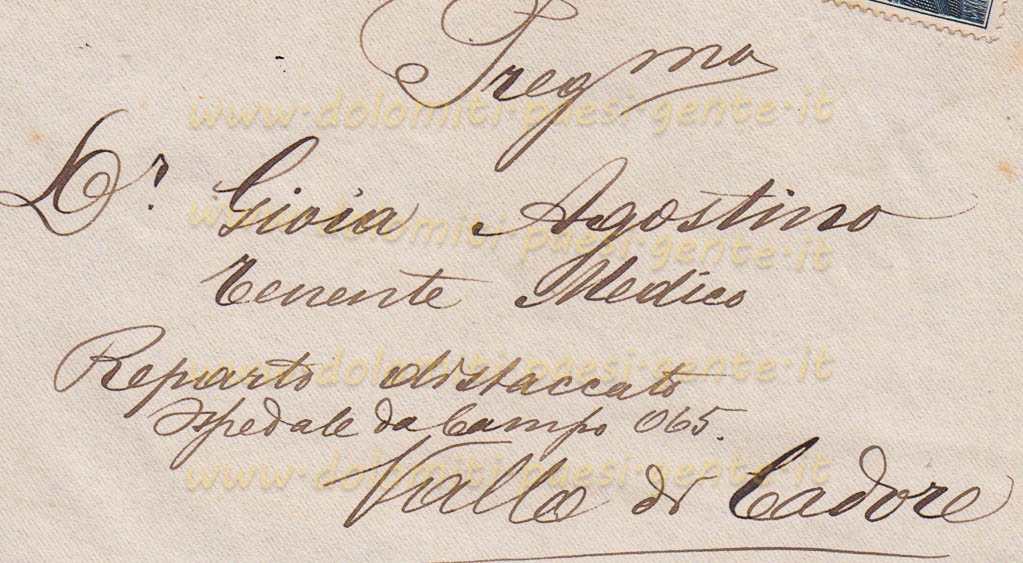 Preg ma
Dr. Gioia Agostino
Tenente Medico
Reparto distaccato
Ospedale da Campo 065.
Valle di Cadore
www.dolomiti-paesi-gente.it
www.dolomiti-paesi-gente.it
www.dolomiti-paesi-gente.it
www.dolomiti-paesi-gente.it